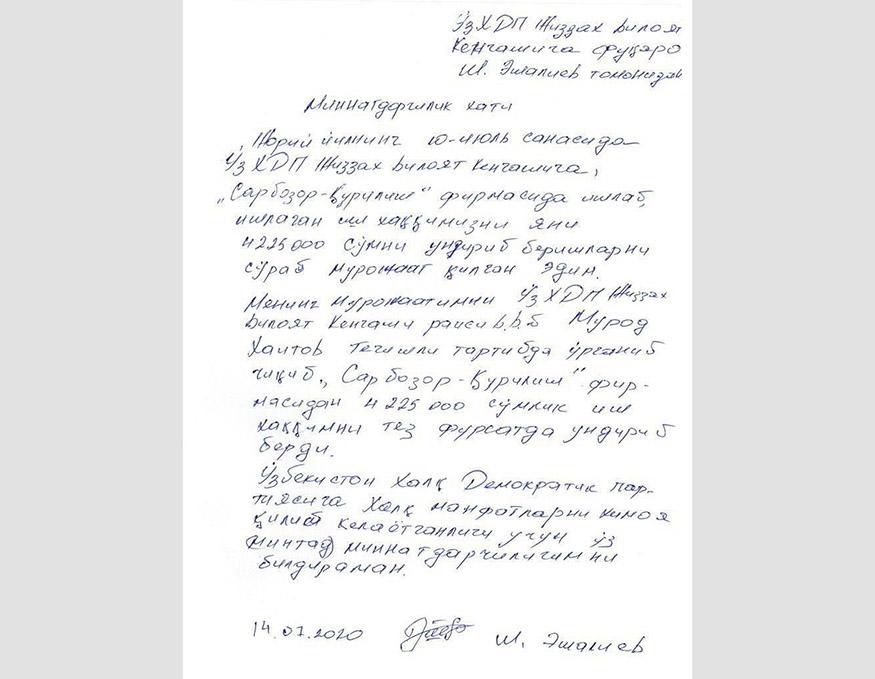 ЎзХДП Жиззах вилоят
Кенгашига фуқаро
Ш. Эшалиев томонидан
Миннатдорчилик хати
Жорий йилнинг 10-июль санасида
ЎзХДП Жиззах вилоят Кенгашига,
„Сарбозор-Қурилиш" фирмасида ишлаб,
ишлаган иш хаққимизни яни
4225000 сўмни ундириб беришларни
сўраб мурожаат қилган эдим.
Менинг мурожаатимни ЎзХДП Жиззах
вилоят Кенгаши раиси в.в.б Мурод
Хаитов тегишли тартибда ўрганиб
чиқиб, „Сарбозор-Қурилиш" фир-
масидан 4225000 сўмлик иш
хаққимни тез фурсатда ундириб
берди.
Ўзбекистон Халқ Демократик пар-
тиясига Халқ манфотларни химоя
қилиб келаётганлиги учун ўз
миннатдарчилигимни
билдираман.
14.07.2020 Ш. Эшалиев